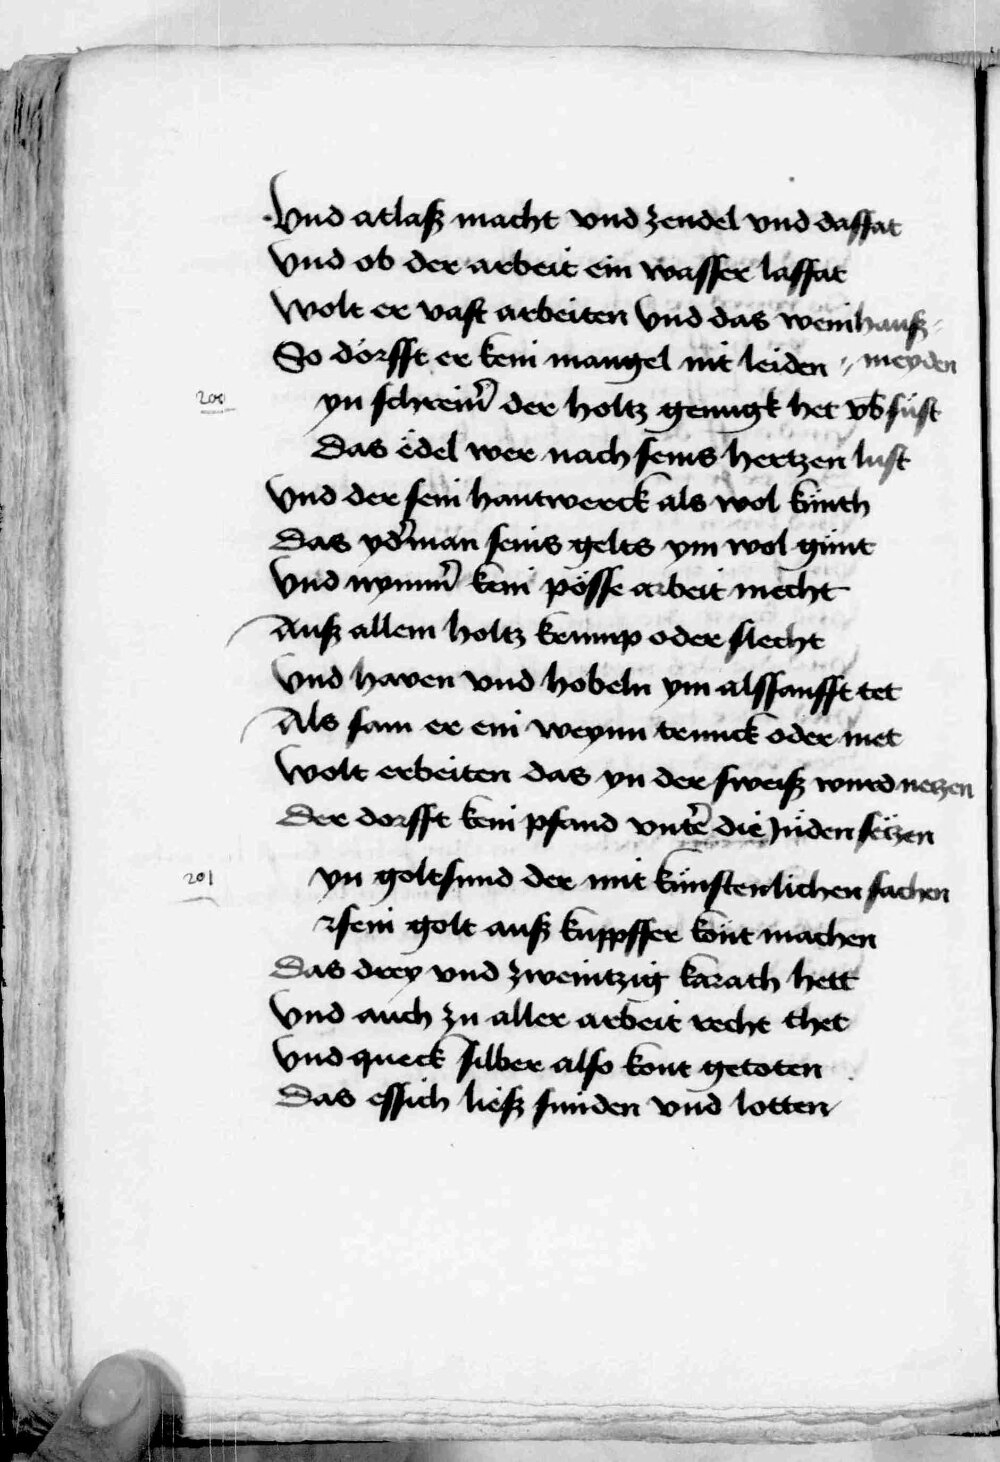 Vnd atlaß macht vnd zendel vnd daffat
Vnd ob der arbeit ein wasser lassat
Wolt er vast arbeiten Vnd das weinhauß
So dörfft er kein mangel nit leiden // meyden
200 yn schreiner̃ der holtz genugk het vb süst
Das edel wer nach seins hertzen lust
Vnd der sein hantwerck als wol künth
Das yd̃man seins gelts ym wol günt
Vnd nymm̃ kein pösse arbeit mecht
Auß allem holtz krump oder slecht
Vnd haven vnd hobeln ym alssanfft tet
Als sam er ein weynn trunck oder met
Wolt erbeiten das yn der sweiß wurd netzen
Der dorfft kein pfand vntter̃ die Jüden setzen
201 yn goltsmid der mit künstenlichen sachen
sein golt auß kuppffer könt machen
Das drey vnd zweintzig karath hett
Vnd auch zu aller arbeit recht thet
Vnd queck silber also kont getoten
Das essich ließ sunden vnd lotten